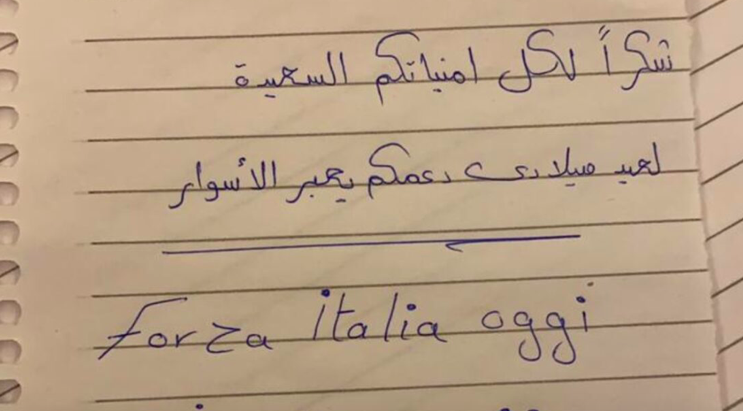 شكراً لكل امنياتكم السعيدة
لعيد ميلادي دعمكم يعبر الأسوار
forza italia oggi